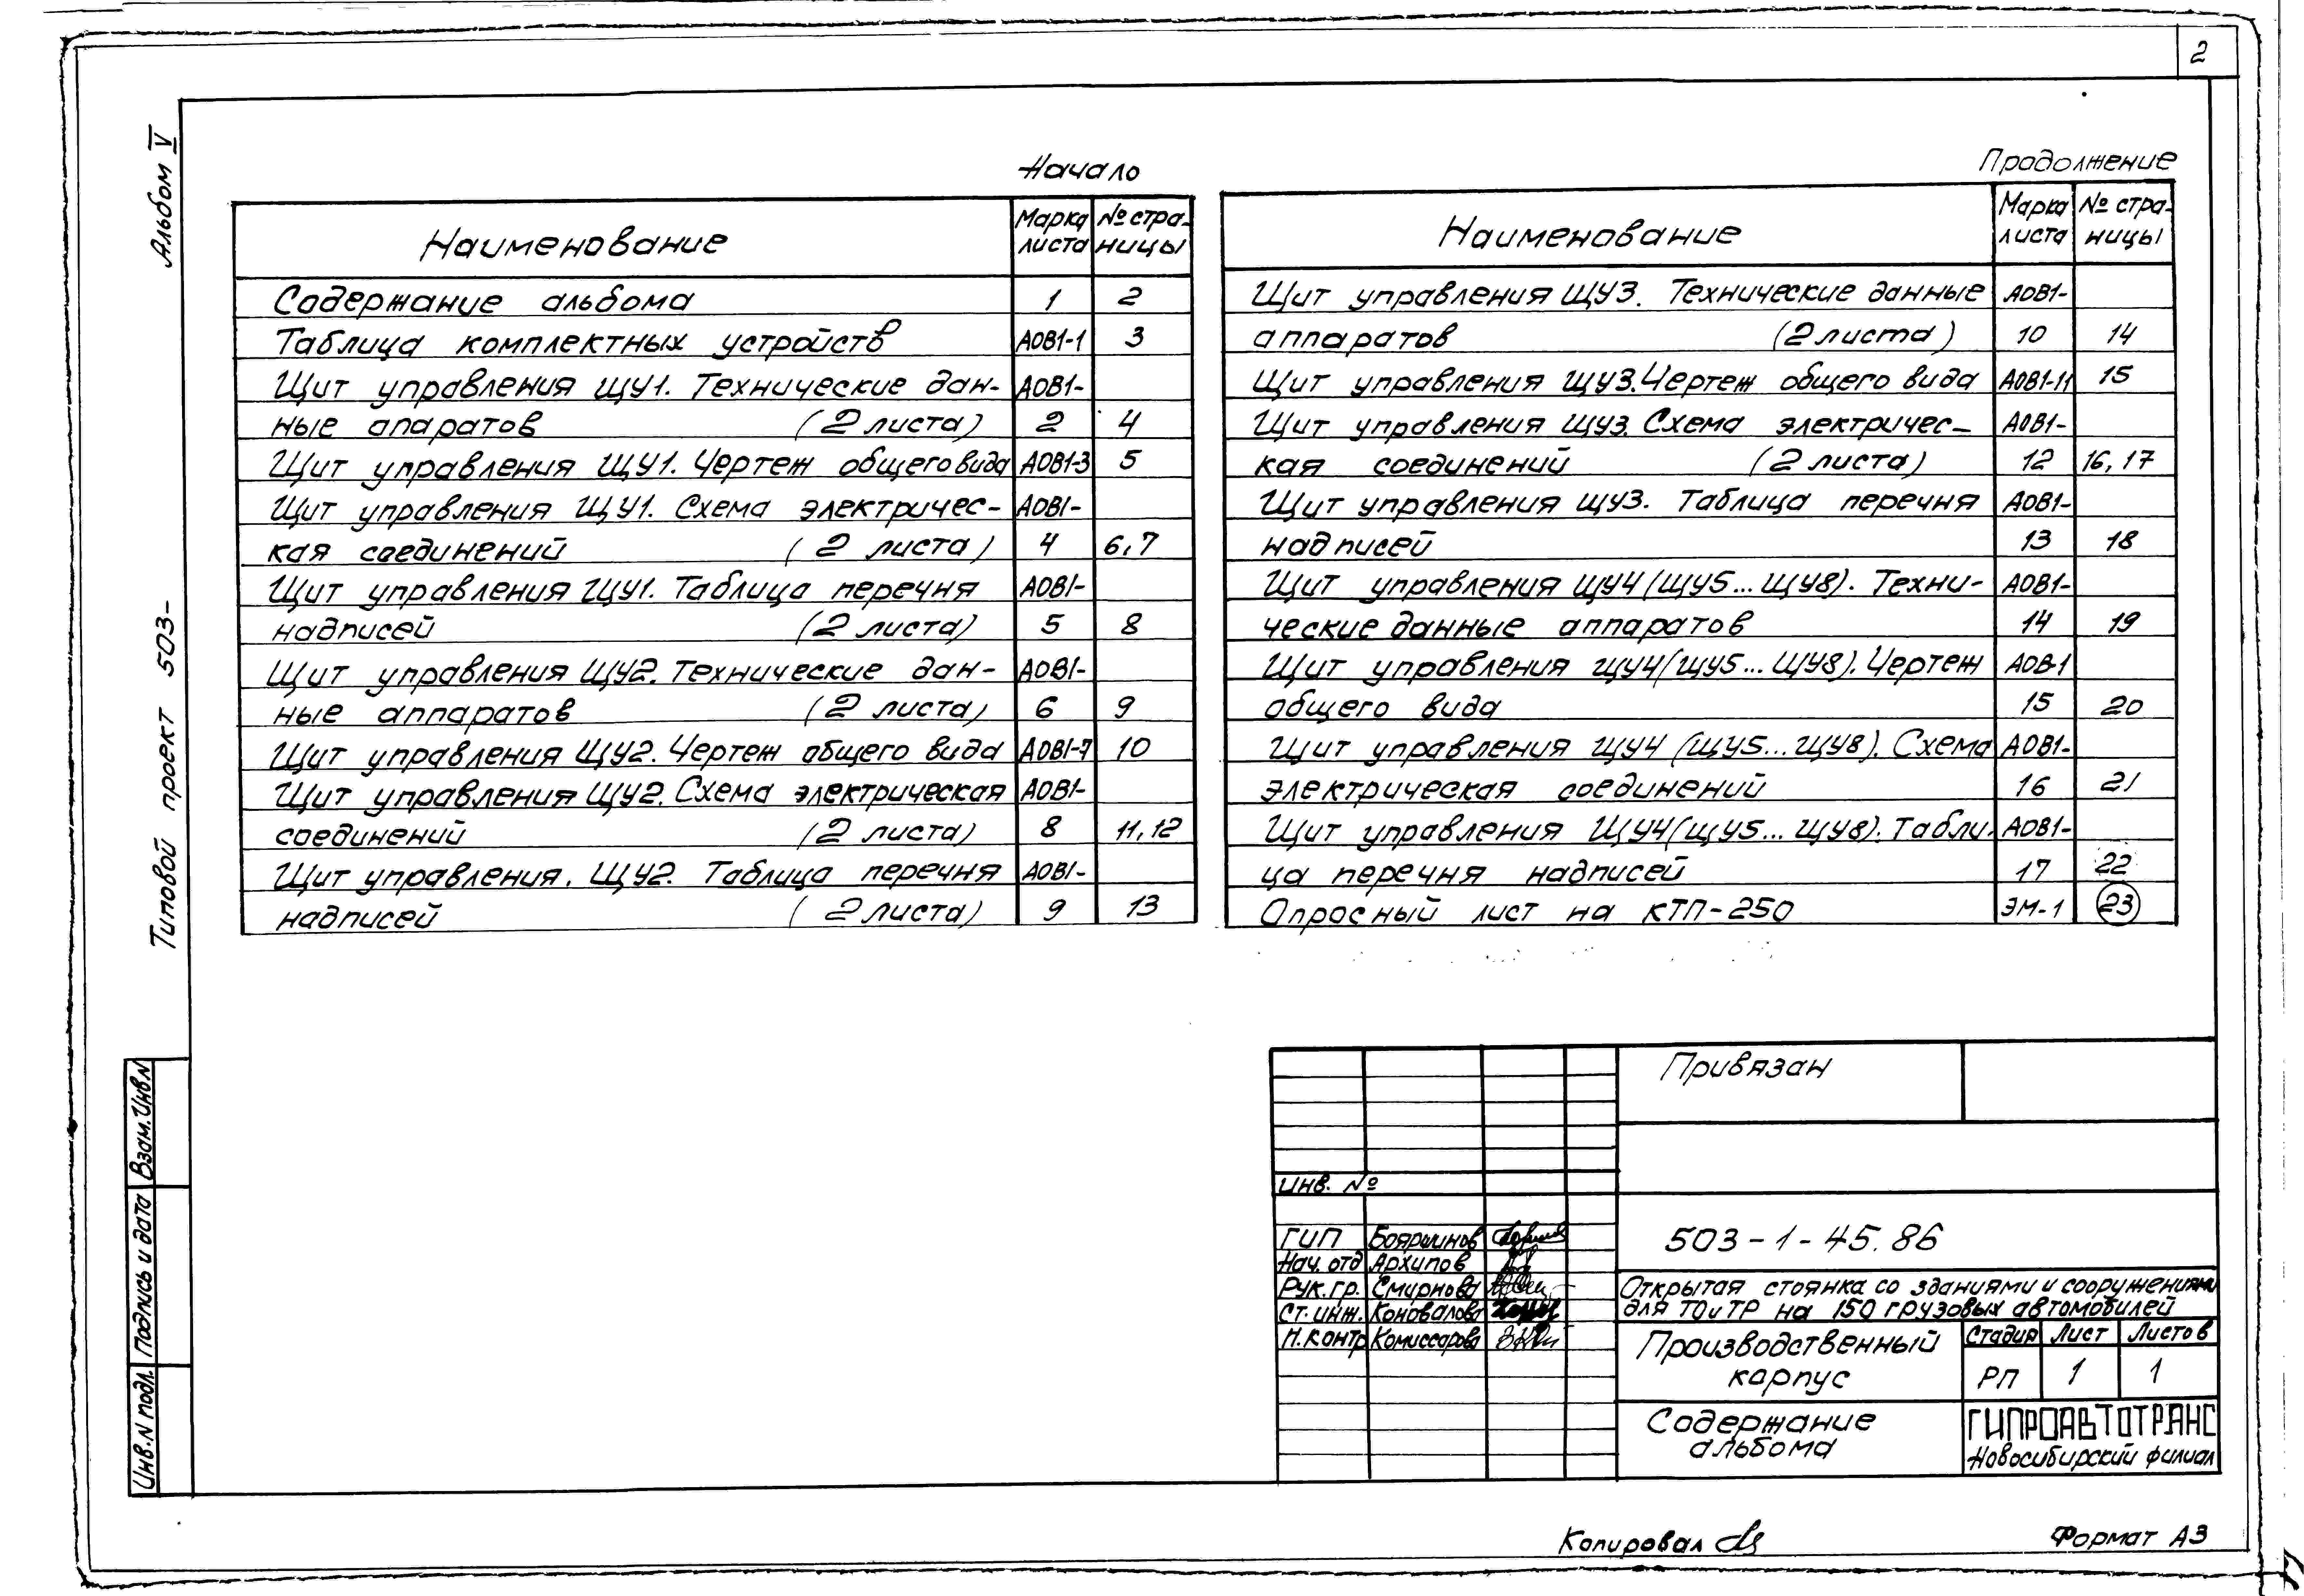 2
Альбом V
Типовой проект 503-
Начало
Наименование | Марка листа | № страницы
Содержание альбома | 1 | 2
Таблица комплектных устройств | АОВ1-1 | 3
Щит управления ЩУ1. Технические дан- | АОВ1-
ные апаратов (2 листа) | 2 | 4
Щит управления ЩУ1. Чертеж общего вида | АОВ1-3 | 5
Щит управления ЩУ1. Схема электричес- | АОВ1-
кая соединений (2 листа) | 4 | 6,7
Щит управления ЩУ1. Таблица перечня | АОВ1-
надписей (2 листа) | 5 | 8
Щит управления ЩУ2. Технические дан- | АОВ1-
ные аппаратов (2 листа) | 6 | 9
Щит управления ЩУ2. Чертеж общего вида | АОВ1-7 | 10
Щит управления ЩУ2. Схема электрическая | АОВ1-
соединений (2 листа) | 8 | 11,12
Щит управления. ЩУ2. Таблица перечня | АОВ1-
надписей (2 листа) | 9 | 13
Продолжение
Наименование | Марка листа | № страницы
Щит управления ЩУ3. Технические данные | АОВ1-
аппаратов (2 листа) | 10 | 14
Щит управления ЩУ3. Чертеж общего вида | АОВ1-11 | 15
Щит управления ЩУ3. Схема электричес- | АОВ1-
кая соединений (2 листа) | 12 | 16,17
Щит управления ЩУ3. Таблица перечня | АОВ1-
надписей | 13 | 18
Щит управления ЩУ4 (ЩУ5...ЩУ8). Техни- | АОВ1-
ческие данные аппаратов | 14 | 19
Щит управления ЩУ4 (ЩУ5...ЩУ8). Чертеж | АОВ-1
общего вида | 15 | 20
Щит управления ЩУ4 (ЩУ5...ЩУ8). Схема | АОВ1-
электрическая соединений | 16 | 21
Щит управления ЩУ4 (ЩУ5...ЩУ8). Табли- | АОВ1-
ца перечня надписей | 17 | 22
Опросный лист на КТП-250 | ЭМ-1 | 23
Взам. Инв N
Подпись и дата
Инв. N подл.
Привязан
Инв. №
ГИП Бояршинов
Нач. отд Архипов
Рук. гр. Смирнова
Ст. инж. Коновалова
Н. контр Комиссарова
503-1-45.86
Открытая стоянка со зданиями и сооружениями
для ТО и ТР на 150 грузовых автомобилей
Производственный
корпус
Стадия Лист Листов
РП 1 1
Содержание
альбома
ГИПРОАВТОТРАНС
Новосибирский филиал
Копировал
Формат А3